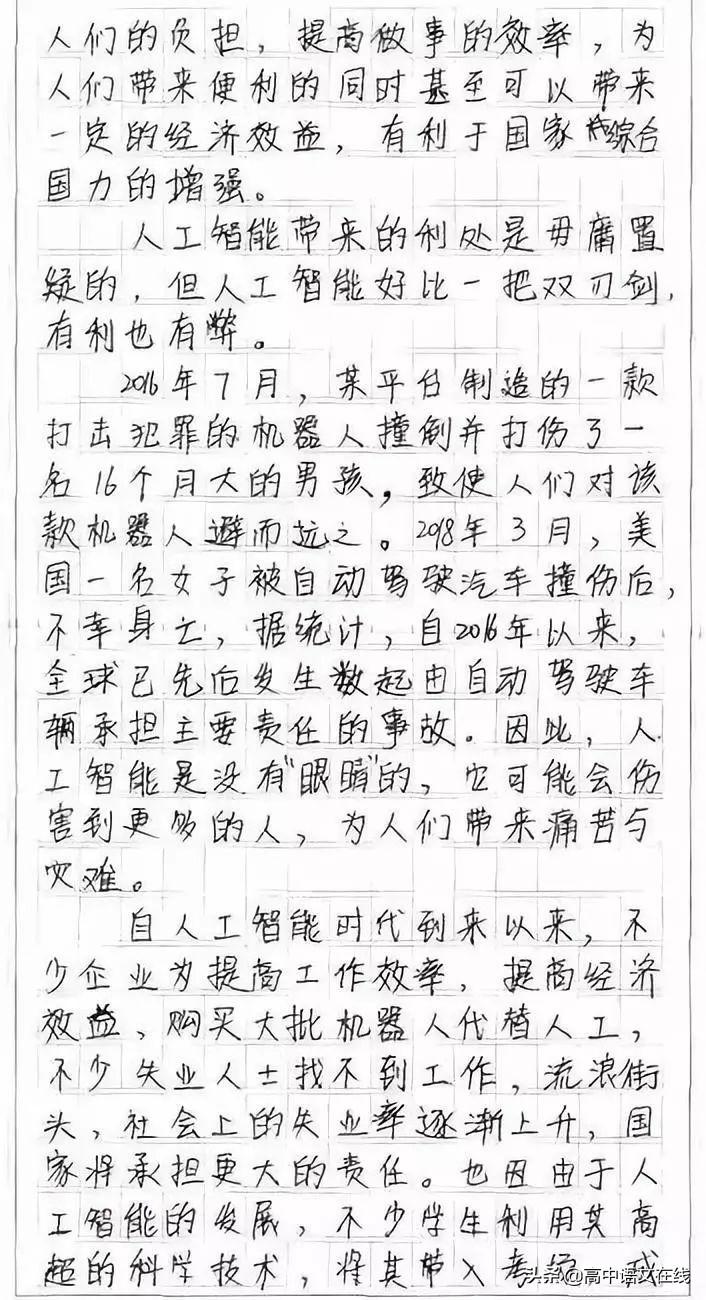 人们的负担，提高做事的效率，为
人们带来便利的同时甚至可以带来
一定的经济效益，有利于国家综合
国力的增强。
人工智能带来的利处是毋庸置
疑的，但人工智能好比一把双刃剑，
有利也有弊。
2016年7月，某平台制造的一款
打击犯罪的机器人撞倒并打伤了一
名16个月大的男孩，致使人们对该
款机器人避而远之。2018年3月，美
国一名女子被自动驾驶汽车撞伤后，
不幸身亡，据统计，自2016年以来，
全球已先后发生数起由自动驾驶车
辆承担主要责任的事故。因此，人
工智能是没有“眼睛”的，它可能会伤
害到更多的人，为人们带来痛苦与
灾难。
自人工智能时代到来以来，不
少企业为提高工作效率，提高经济
效益，购买大批机器人代替人工，
不少失业人士找不到工作，流浪街
头，社会上的失业率逐渐上升，国
家将承担更大的责任。也因由于人
工智能的发展，不少学生利用其高
超的科学技术，将其带入考场，或
头条@高中语文在线